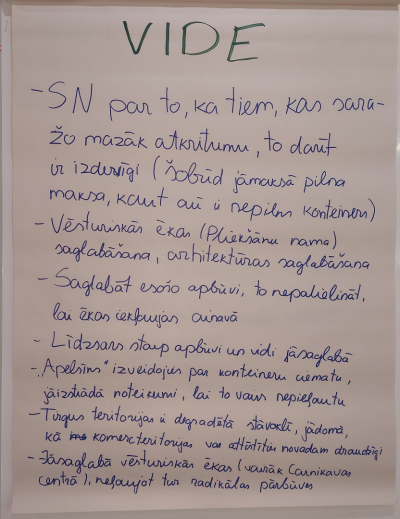 VIDE
- SN par to, ka tiem, kas sara-
žo mazāk atkritumu, to darīt
ir izdevīgi (šobrīd jāmaksā pilna
maksa, kaut arī ir nepilns konteiners)
- Vēsturiskās ēkas (Pliekšānu nama)
saglabāšana, arhitektūras saglabāšana
- Saglabāt esošo apbūvi, to nepalielināt,
lai ēkas iekļaujas ainavā
- Līdzsvars starp apbūvi un vidi jāsaglabā
- "Apelsīns" izveidojies par konteineru ciematu,
jāizstrādā noteikumi, lai to vairs nepieļautu
- Tirgus teritorijas ir degradētā stāvoklī, jādomā,
kā komercteritorijas var attīstītis novadam draudzīgi
- Jāsaglabā vēsturiskās ēkas (vairāk Carnikavas
centrā), neļaujot tur radikālas pārbūves